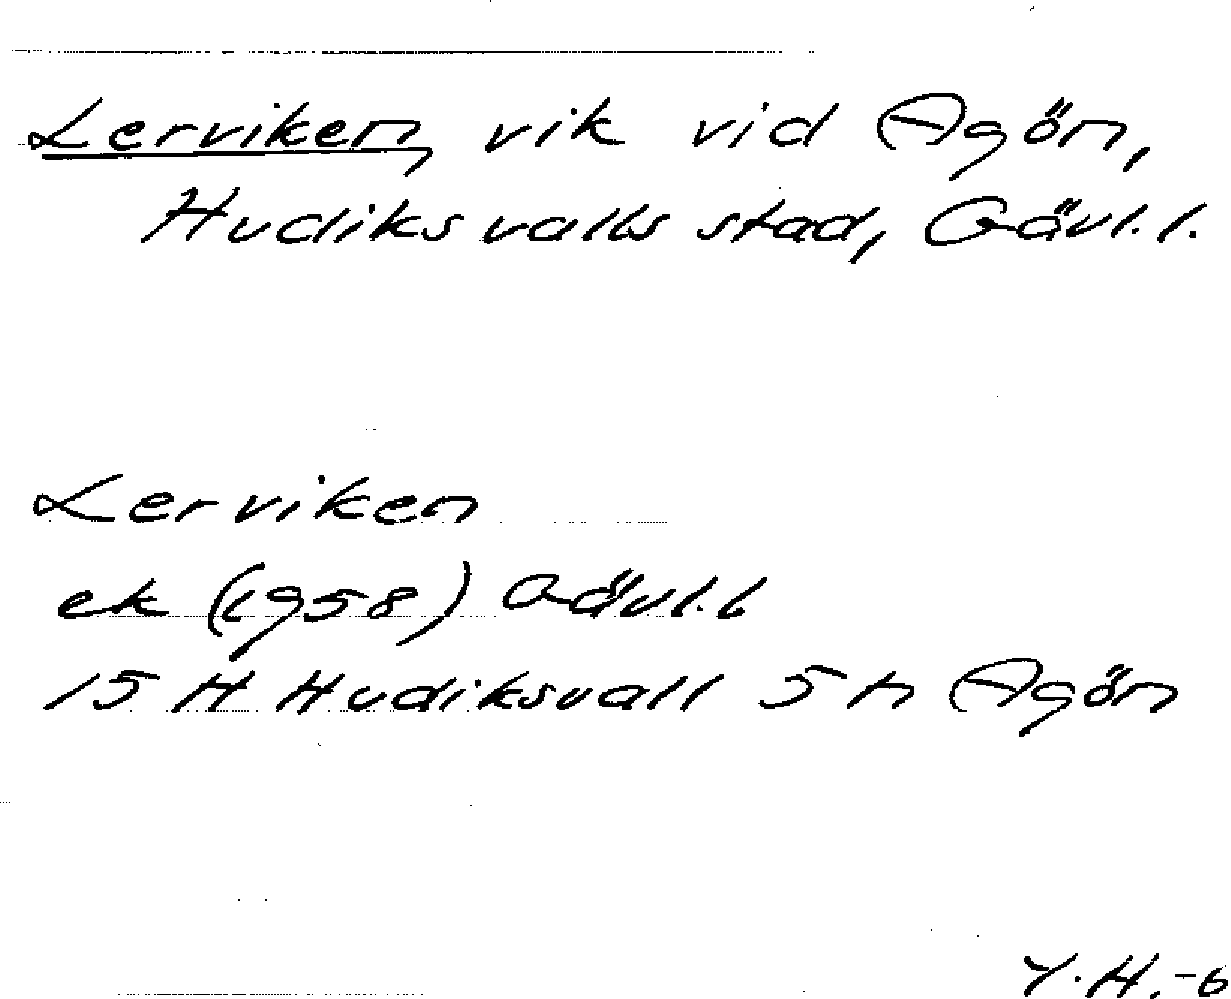 Lerviken, vik vid Agön,
Hudiksvalls stad, Gävl. l.
Lerviken
ek (1958) Gävl. l
15 H Hudiksvall 5 h Agön
Y. H. -6